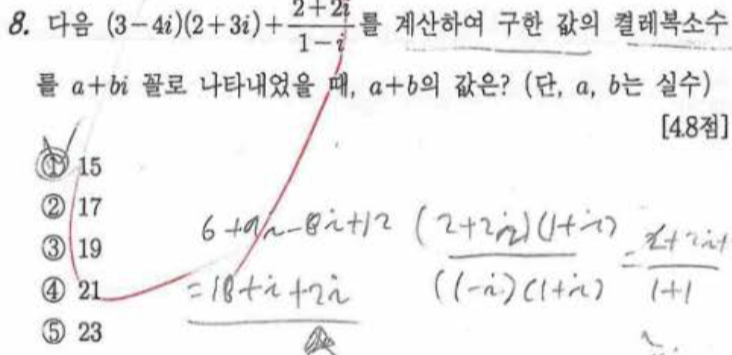 8. 다음 (3-4i)(2+3i)+\frac{2+2i}{1-i}를 계산하여 구한 값의 켤레복소수
를 a+bi 꼴로 나타내었을 때, a+b의 값은? (단, a, b는 실수)
[4.8점]
① 15
② 17
③ 19
④ 21
⑤ 23
6+9i-8i+12
=18+i+2i
\frac{(2+2i)(1+i)}{(1-i)(1+i)}
=\frac{2+2i+}{1+1}